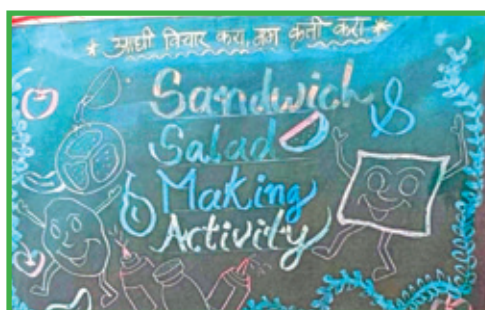 * आधी विचार करा, मग कृती करा *
Sandwich &
Salad
Making
Activity